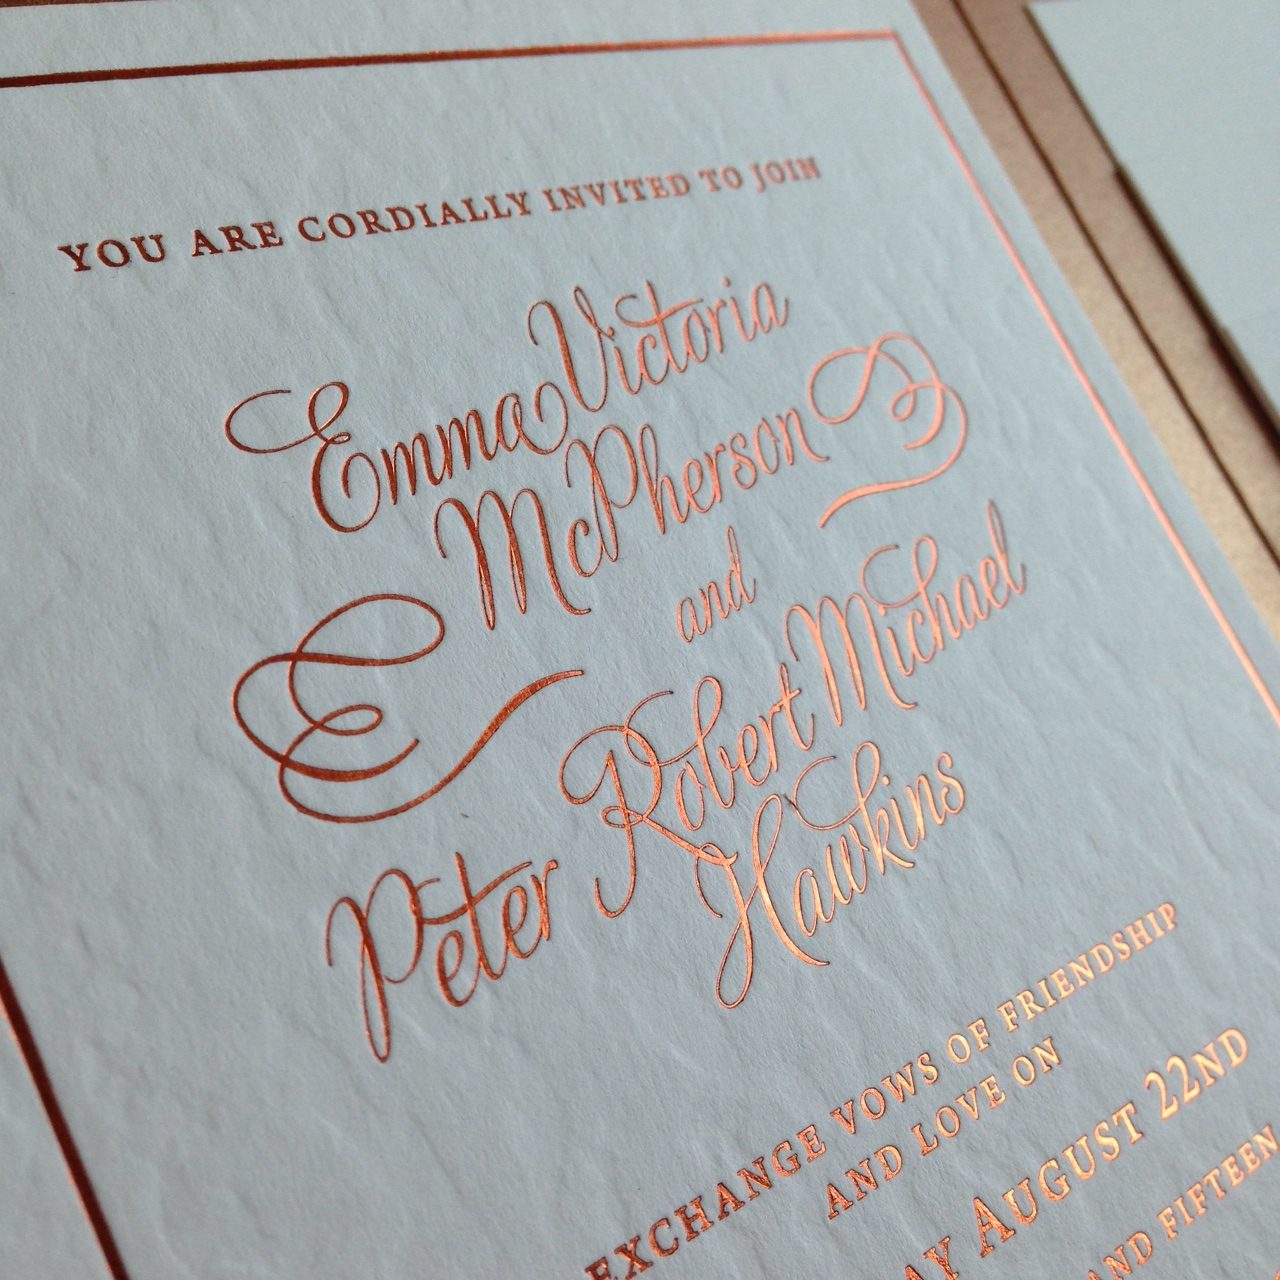 YOU ARE CORDIALLY INVITED TO JOIN
Emma Victoria
McPherson
and
Peter Robert Michael
Hawkins
EXCHANGE VOWS OF FRIENDSHIP
AND LOVE ON
AUGUST 22ND
AND FIFTEEN